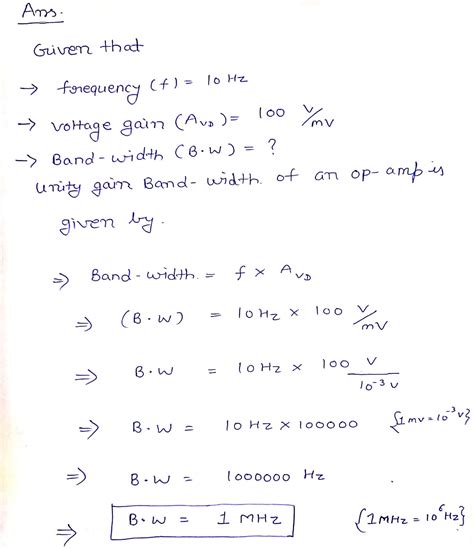 Ans.
Given that
→ forequency (f) = 10 Hz
→ voltage gain (A_VD) = 100 V/mv
→ Band-width (B·W) = ?
unity gain Band-width of an op-amp is
given by.
⇒ Band-width = f × A_VD
⇒ (B·W) = 10 Hz × 100 V/mv
⇒ B·W = 10 Hz × 100 V/10⁻³ v
⇒ B·W = 10 Hz × 100000 {1mv = 10⁻³v}
⇒ B·W = 1000000 Hz
⇒ B·W = 1 MHz {1MHz = 10⁶ Hz}